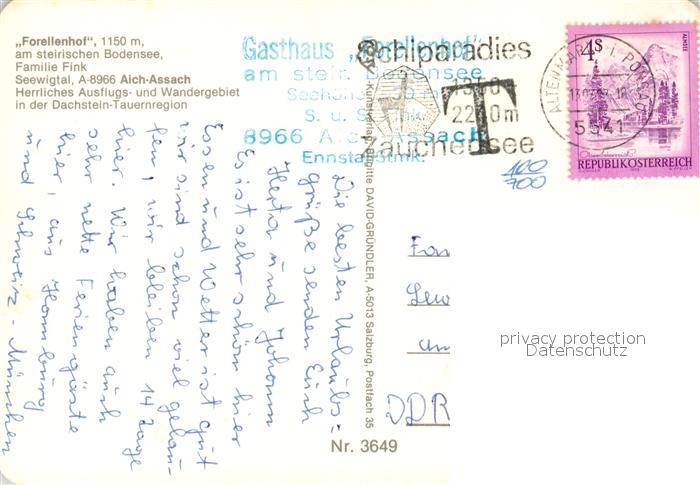 „Forellenhof“, 1150 m,
am steirischen Bodensee,
Familie Fink
Seewigtal, A-8966 Aich-Assach
Herrliches Ausflugs- und Wandergebiet
in der Dachstein-Tauernregion
Gasthaus „Forellenhof“
am steir. Bodensee
8966 Aich-Assach
Ennstal, Stmk.
Schiparadies
1350
2200m
Zauchensee
T
ALTENMARKT I. PONGAU
5541
4S
ALMSEE
REPUBLIK ÖSTERREICH
160
700
Die besten Urlaubs=
grüße senden Euch
Herta und Johann
Es ist sehr schön hier
Essen und Wetter ist gut
wir sind schon viel gelau-
fen, wir bleiben 14 Tage
hier. Wir haben auch
sehr nette Feriengäste
hier, aus Hamburg
und Schweiz - München
Kunstverlag Brigitte DAVID-GRÜNDLER, A-5013 Salzburg, Postfach 35
Fam
DDR
Nr. 3649
privacy protection
Datenschutz